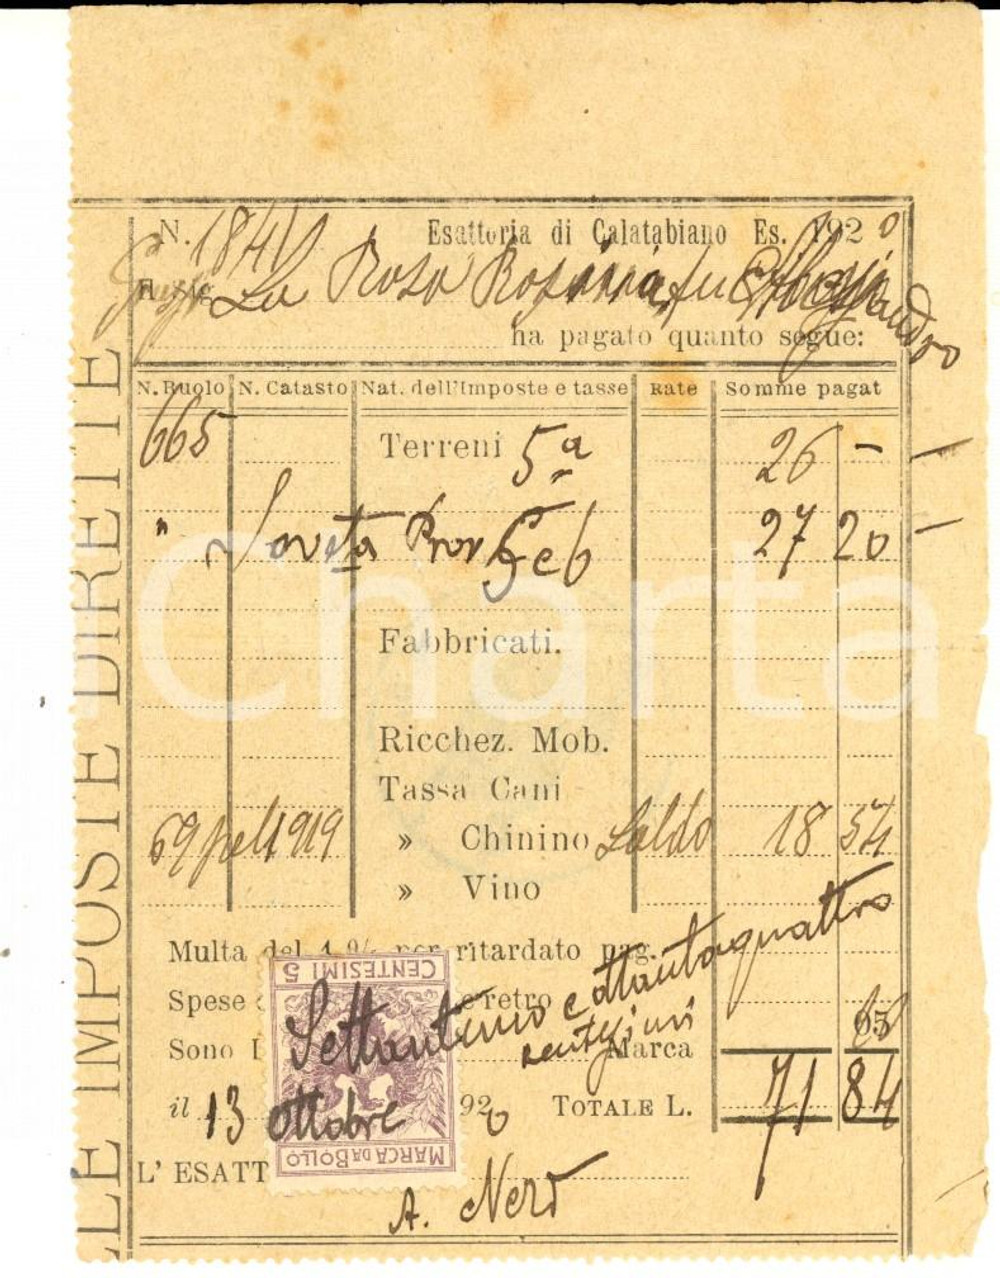 N. 1841 Esattoria di Calatabiano Es. 1920
La Rosa Rosaria fu
ha pagato quanto segue:
N. Ruolo N. Catasto Nat. dell'Imposte e tasse Rate Somme pagat
665 Terreni 5a 26 -
" Sovrta Prov 5 e 6 27 20
Fabbricati.
Ricchez. Mob.
Tassa Cani
69 1919 » Chinino Saldo 18 54
» Vino
Multa del 4 % per ritardato pag.
Spese retro
Settantuno e ottantaquattro
centesimi
Sono Marca
il 13 ottobre 920 TOTALE L. 71 84
L' ESATT
A. Neri
CENTESIMI 5
MARCA DA BOLLO
LLE IMPOSTE DIRETTE
Charta